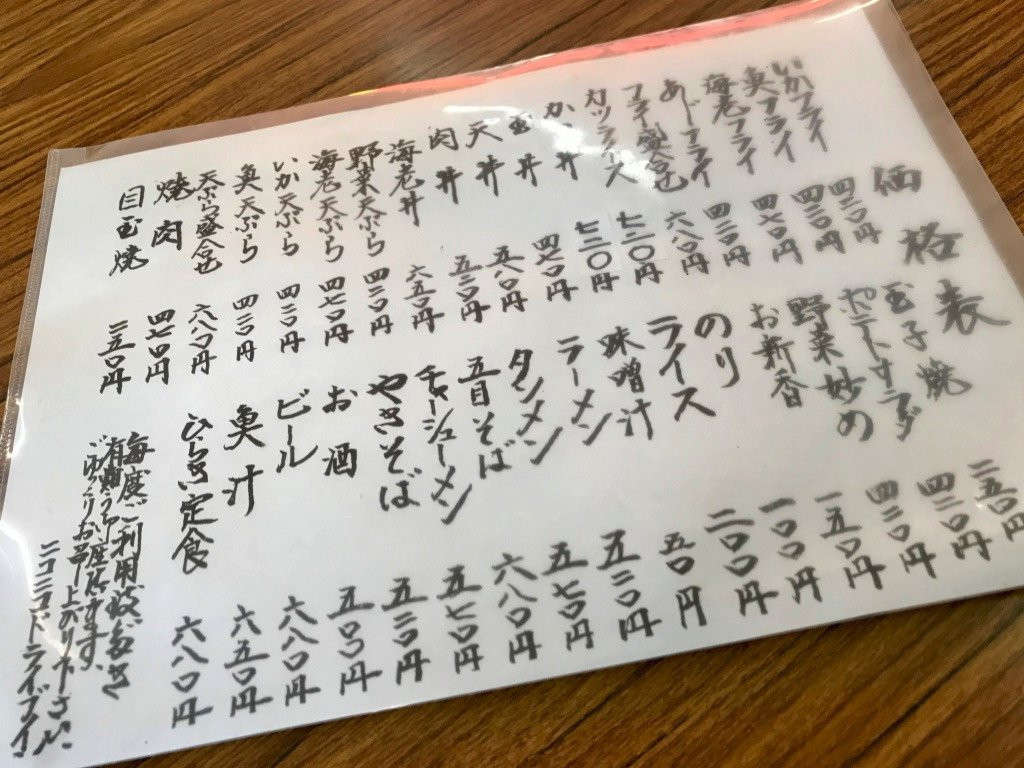 価格表
いかフライ 四二〇円
魚フライ 四二〇円
海老フライ 四七〇円
あじフライ 四二〇円
フライ盛合せ 六八〇円
カツライス 七二〇円
かつ丼 七二〇円
玉丼 四七〇円
天丼 五八〇円
肉丼 五二〇円
海老丼 六五〇円
野菜天ぷら 四二〇円
海老天ぷら 四七〇円
いか天ぷら 四二〇円
魚天ぷら 四二〇円
天ぷら盛合せ 六八〇円
焼肉 四七〇円
目玉焼 二五〇円
玉子焼 二五〇円
ポテトサラダ 四二〇円
野菜妙め 四二〇円
お新香 一五〇円
のり 一〇〇円
ライス 二〇〇円
味噌汁 五〇円
ラーメン 五二〇円
タンメン 五七〇円
五目そば 六八〇円
チャーシューメン 五七〇円
やきそば 五二〇円
お酒 五〇〇円
ビール 六八〇円
魚汁 六五〇円
ひらき定食 六八〇円
毎度ご利用頂き
有難うご座居ます、
ごゆっくりお召上がり下さい、
ニコニコドライブイン